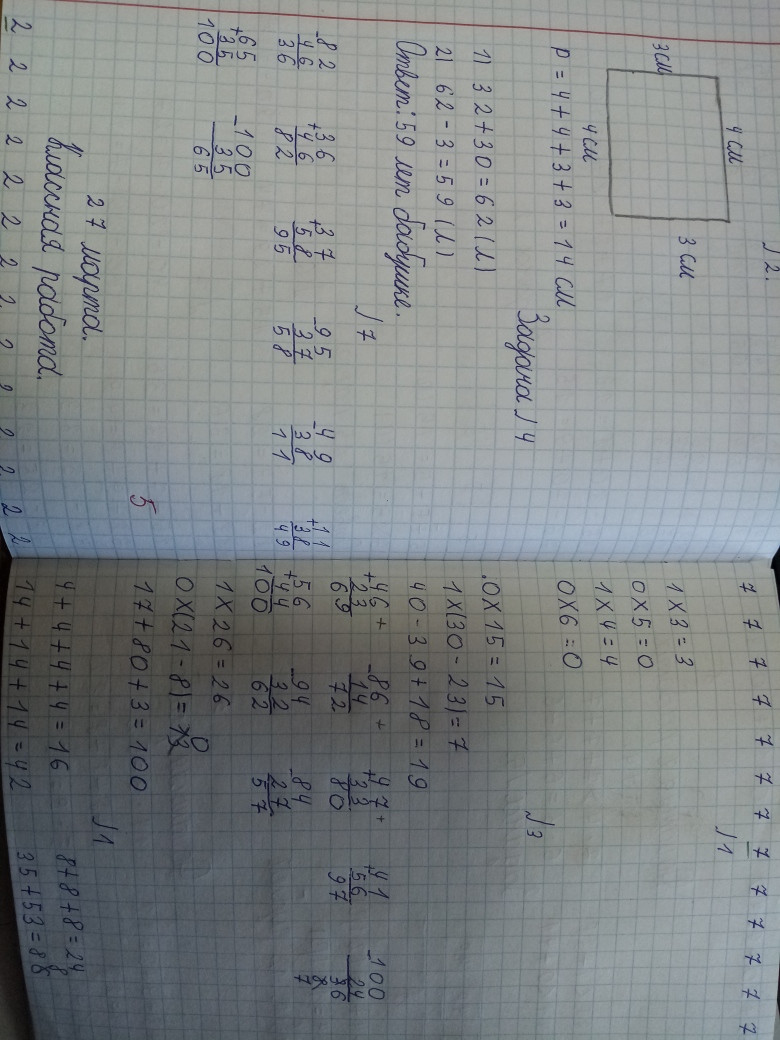 №2.
4 см
3 см 3 см
4 см
P = 4+4+3+3=14 см
Задача №4
1) 32+30=62(л)
2) 62-3=59(л)
Ответ: 59 лет бабушке.
№7
-82 +36 +37 -95 -49 +11
46 46 58 37 38 38
36 82 95 58 11 49
+65 -100
35 35
100 65
5
27 марта.
Классная работа.
2 2 2 2 2 2 2 2 2 2 2 2 2 2
7 7 7 7 7 7 7 7 7 7 7 7 7
№1
1×3=3
0×5=0
1×4=4
0×6=0
№3
.0×15=15
1×(30-23)=7
40-39+18=19
+46+ -86+ +47+ +41 -100
23 14 33 56 24
69 72 80 97
7
+56 -94 -84
44 32 27
100 62 57
1×26=26
0×(21-8)=0
17+80+3=100
№1
4+4+4+4=16 8+8+8=24
14+14+14=42 35+53=88